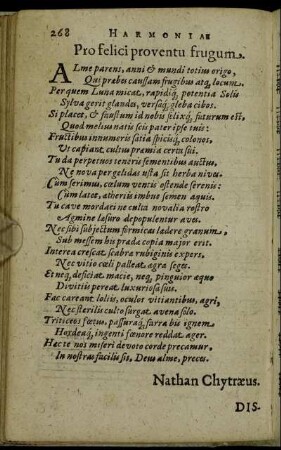 268 HARMONIAE
Pro felici proventu frugum.
ALme parens, anni & mundi totius origo,
Qui præbes caussam frugibus atq, locum:
Per quem Luna micat, rapidiq, potentia Solis
Sylva gerit glandes, versaq, gleba cibos.
Si placet, & faustum id nobis felixq, futurum est,
Quod melius nati scis pater ipse tuis:
Fructibus innumeris satia spicisq, colonos,
Ut capiant cultus præmia certa sui.
Tu da perpetuos teneris sementibus auctus,
Ne nova per gelidas usta sit herba nives.
Cùm serimus, cœlum ventis ostende serenis:
Cùm latet, æthereis imbue semen aquis.
Tu cave mordaci ne culta novalia rostro
Agmine læsuro depopulentur aves.
Nec sibi subjectum formicæ lædere granum,
Sub messem his præda copia major erit.
Interea crescat scabræ rubiginis expers,
Nec vitio cœli palleat ægra seges.
Et neq, deficiat macie, neq, pinguior æquo
Divitiis pereat luxuriosa suis.
Fac careant loliis, oculos vitiantibus, agri,
Nec sterilis culto surgat avena solo.
Triticeos fœtus, passuraq, farra bis ignem
Hordeaq, ingenti fœnore reddat ager.
Hæc te nos miseri devoto corde precamur,
In nostras facilis sis, Deus alme, preces.
Nathan Chytræus.
DIS-